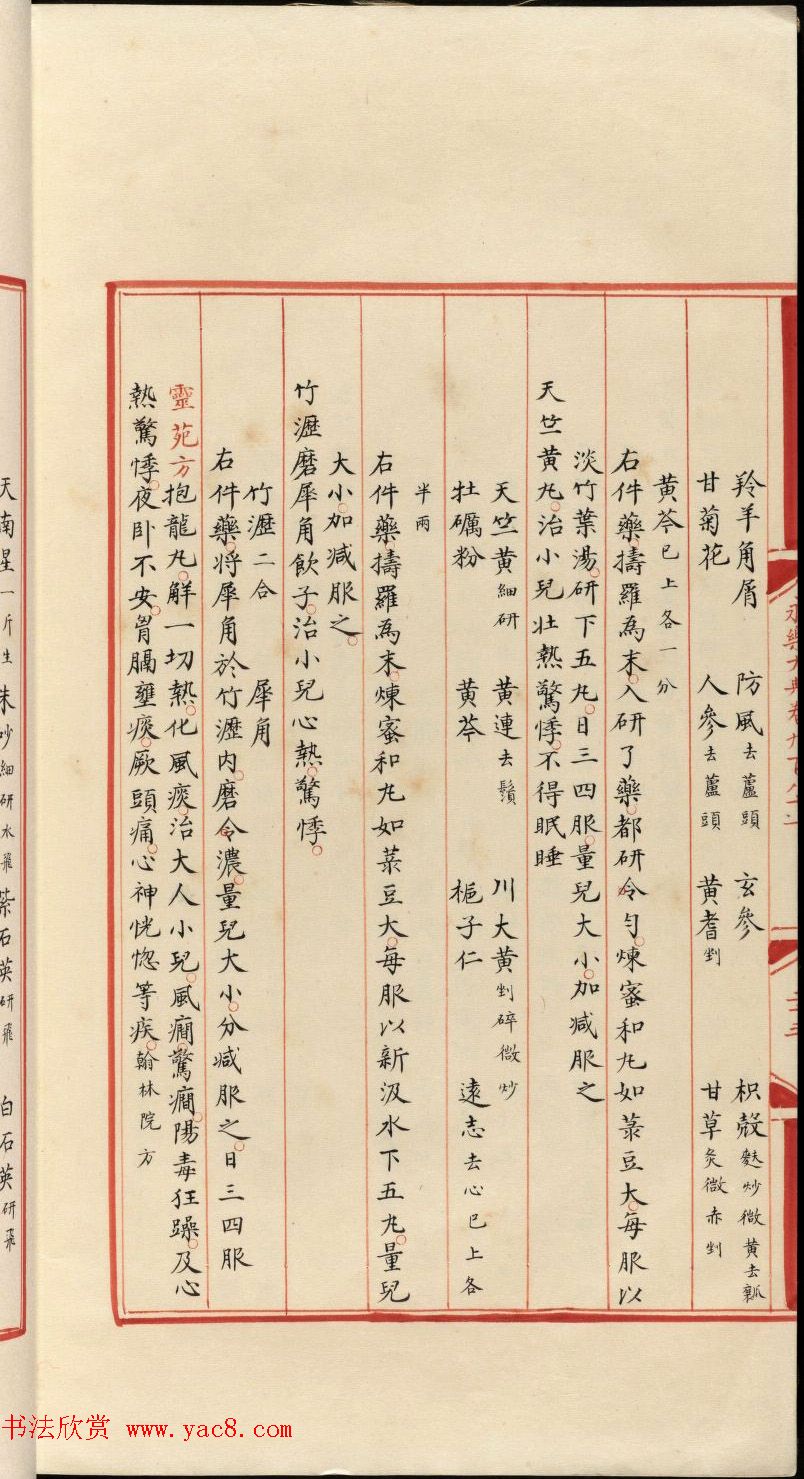 永樂大典卷九百八十一
羚羊角屑 防風去蘆頭 玄參 枳殼麩炒微黃去瓤
甘菊花 人參去蘆頭 黃耆剉 甘草炙微赤剉
黃芩已上各一分
右件藥擣羅為末入研了藥都研令勻煉蜜和丸如菉豆大每服以
淡竹葉湯研下五丸日三四服量兒大小加減服之
天竺黃丸治小兒壯熱驚悸不得眠睡
天竺黃細研 黃連去鬚 川大黃剉碎微炒
牡礪粉 黃芩 梔子仁 遠志去心已上各
半兩
右件藥擣羅為末煉蜜和丸如菉豆大每服以新汲水下五丸量兒
大小加減服之
竹瀝磨犀角飲子治小兒心熱驚悸
竹瀝二合 犀角
右件藥將犀角於竹瀝內磨令濃量兒大小分減服之日三四服
靈苑方抱龍丸解一切熱化風痰治大人小兒風癇驚癇陽毒狂躁及心
熱驚悸夜卧不安胷膈壅痰厥頭痛心神恍惚等疾翰林院方
天南星一斤生 朱砂細研水飛 紫石英研飛 白石英研飛
书法欣赏 www.yac8.com